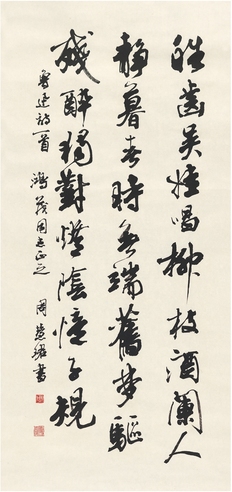 皓齒吳娃唱柳枝酒闌人
靜暮春時無端舊夢驅
殘醉獨對燈陰憶子規
魯迅詩一首 鴻茂同志正之 周慧珺書